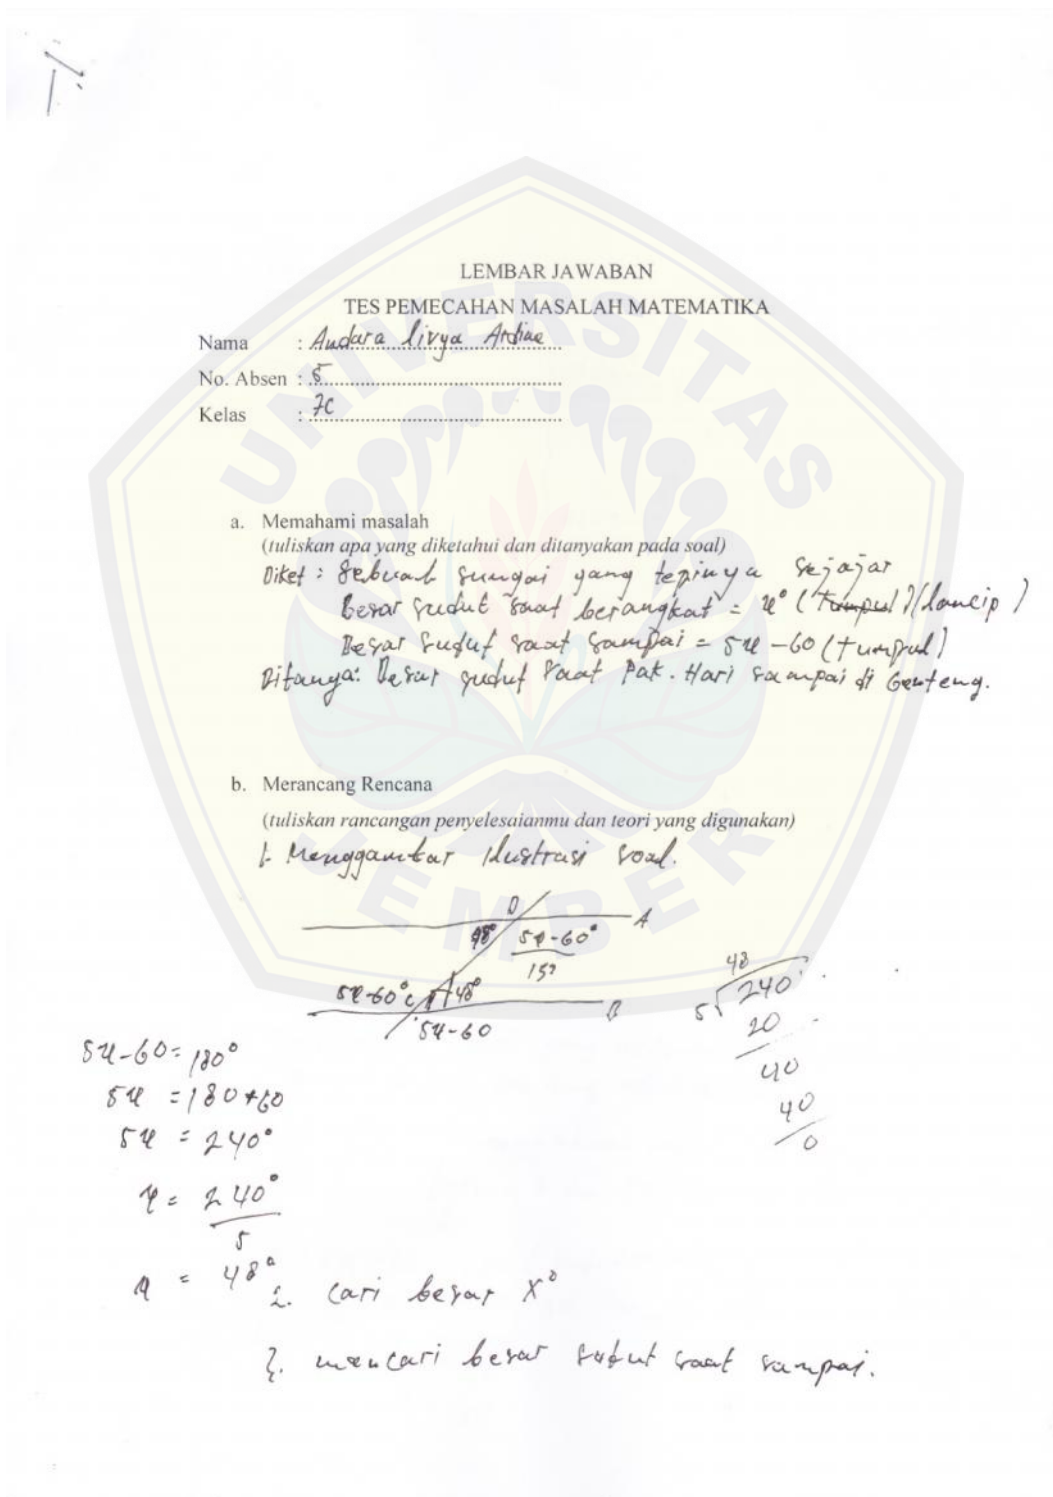 LEMBAR JAWABAN
TES PEMECAHAN MASALAH MATEMATIKA
Nama : Andara livya Ardine
No. Absen : 5
Kelas : 7C
UNIVERSITAS
JEMBER
a. Memahami masalah
(tuliskan apa yang diketahui dan ditanyakan pada soal)
Diket : Sebuah sungai yang tepinya sejajar
besar sudut saat berangkat = x° (tumpul) (lancip)
Besar sudut saat sampai = 5x - 60 (tumpul)
Ditanya: Besar sudut saat Pak. Hari sampai di Genteng.
b. Merancang Rencana
(tuliskan rancangan penyelesaianmu dan teori yang digunakan)
1. Menggambar ilustrasi soal.
D A
48° 5x-60°
5x-60° C 48° B
5x-60
48
5 240
20
40
40
0
5x-60 = 180°
5x = 180+60
5x = 240°
x = 240°
5
x = 48°
2. cari besar x°
3. mencari besar sudut saat sampai.